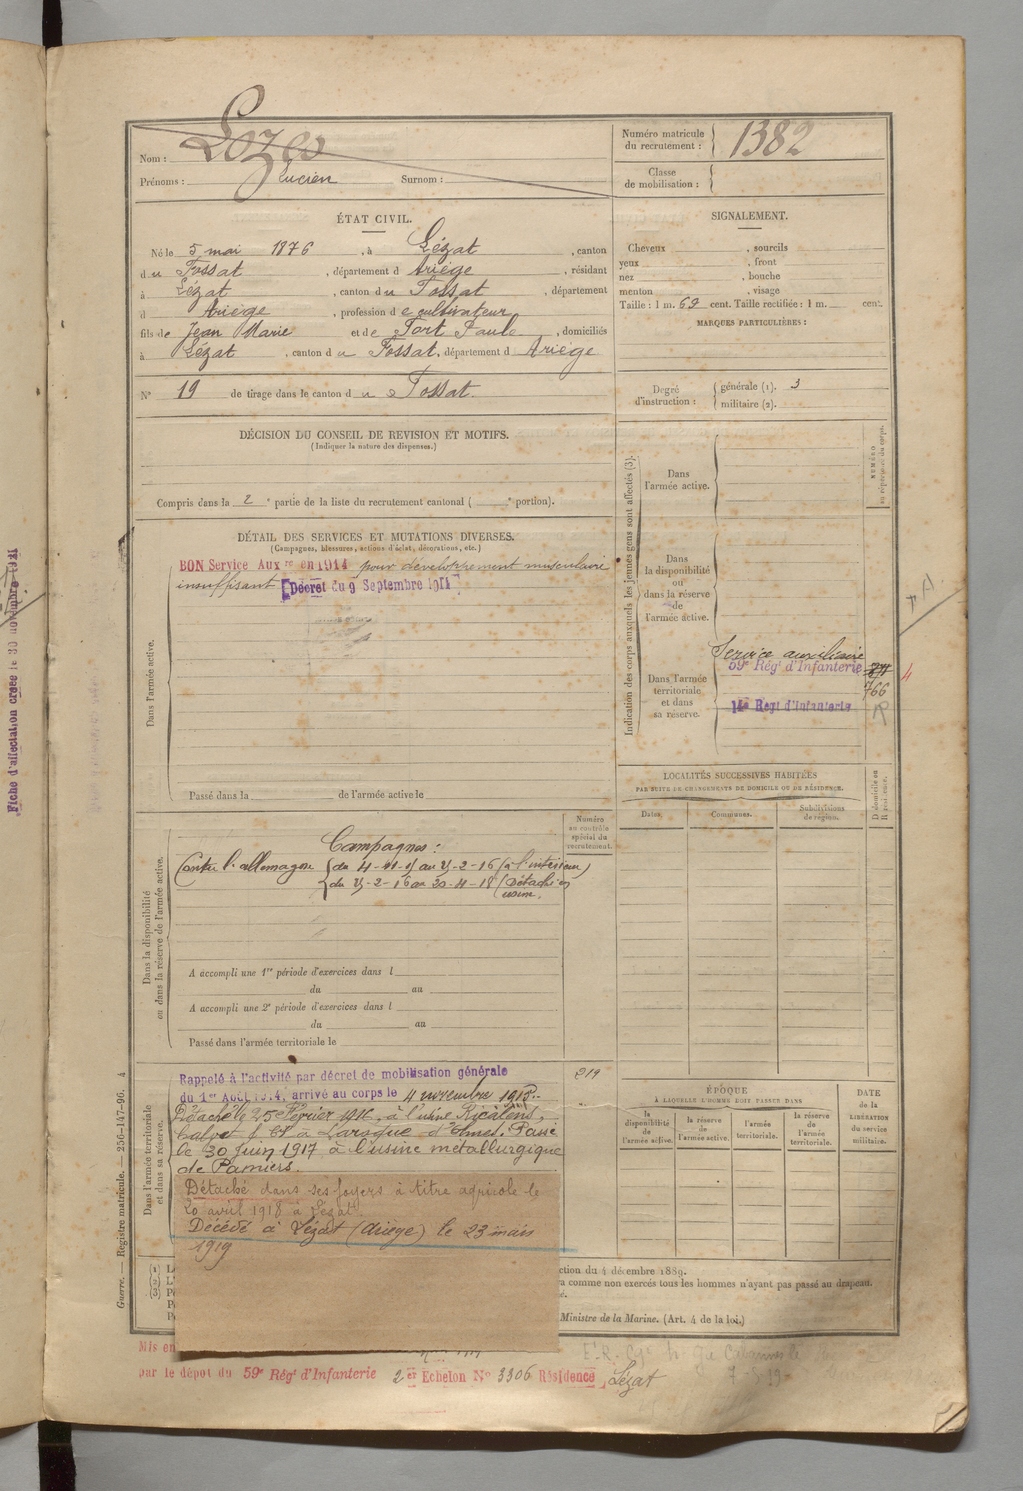 Nom : Lozes
Prénoms : Lucien Surnom :
Numéro matricule du recrutement : 1382
Classe de mobilisation :
ÉTAT CIVIL.
Né le 5 mai 1876, à Lézat, canton
du Fossat, département d Ariège, résidant
à Lézat, canton du Fossat, département
d Ariège, profession de cultivateur
fils de Jean Marie et de Fort Paule, domiciliés
à Lézat, canton du Fossat, département d Ariège
N° 19 de tirage dans le canton du Fossat.
SIGNALEMENT.
Cheveux , sourcils
yeux , front
nez , bouche
menton , visage
Taille : 1 m. 69 cent. Taille rectifiée : 1 m. cent.
MARQUES PARTICULIÈRES :
Degré d'instruction : générale (1). 3
militaire (2).
DÉCISION DU CONSEIL DE REVISION ET MOTIFS.
(Indiquer la nature des dispenses.)
Compris dans la 2e partie de la liste du recrutement cantonal ( e portion).
DÉTAIL DES SERVICES ET MUTATIONS DIVERSES.
(Campagnes, blessures, actions d'éclat, décorations, etc.)
Dans l'armée active.
BON Service Auxre en 1914 pour développement musculaire
insuffisant Décret du 9 Septembre 1914
Passé dans la de l'armée active le
Indication des corps auxquels les jeunes gens sont affectés (3).
NUMÉRO au répertoire du corps.
Dans l'armée active.
Dans la disponibilité ou dans la réserve de l'armée active.
Dans l'armée territoriale et dans sa réserve.
Service auxiliaire
59e Régt d'Infanterie
766
14e Regt d'Infanterie
LOCALITÉS SUCCESSIVES HABITÉES
PAR SUITE DE CHANGEMENTS DE DOMICILE OU DE RÉSIDENCE.
Dates. Communes. Subdivisions de région. D domicile ou R résidence.
Numéro au contrôle spécial du recrutement.
Dans la disponibilité ou dans la réserve de l'armée active.
Campagnes :
Contre l'allemagne du 4-11-15 au 25-2-16 (à l'intérieur)
du 25-2-16 au 20-4-18 (Détaché en
usine.
A accompli une 1re période d'exercices dans l
du au
A accompli une 2e période d'exercices dans l
du au
Passé dans l'armée territoriale le
Dans l'armée territoriale et dans sa réserve.
Rappelé à l'activité par décret de mobilisation générale
du 1er Août 1914, arrivé au corps le 4 novembre 1915.
219
Détaché le 25 Février 1916 à l'usine Ricalens,
à Laroque d'Olmes. Passé
le 30 Juin 1917 à l'usine métallurgique
de Pamiers.
Détaché dans ses foyers à titre agricole le
20 avril 1918 à Lézat.
Décédé à Lézat (Ariège) le 23 mars
1919
ÉPOQUE
À LAQUELLE L'HOMME DOIT PASSER DANS
la disponibilité de l'armée active. la réserve de l'armée active. l'armée territoriale. la réserve de l'armée territoriale.
DATE de la LIBÉRATION du service militaire.
ction du 4 décembre 1889.
a comme non exercés tous les hommes n'ayant pas passé au drapeau.
Ministre de la Marine. (Art. 4 de la loi.)
Mis en
par le dépot du 59e Régt d'Infanterie 2er Echelon No 3306 Résidence Lézat
7-5-19
Guerre. — Registre matricule. — 256-147-96. 4
Fiche d'affectation créée le 30 novembre 1921